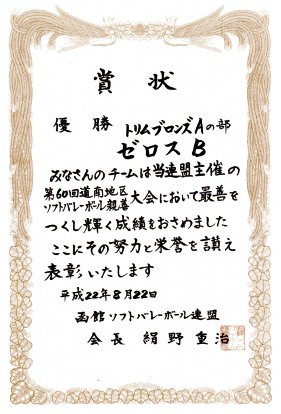 賞状
優勝 トリムブロンズAの部
ゼロスB
みなさんのチームは当連盟主催の
第60回道南地区
ソフトバレーボール親善大会において最善を
つくし輝く成績をおさめました
ここにその努力と栄誉を讃え
表彰いたします
平成22年8月22日
函館ソフトバレーボール連盟
会長 絹野重治